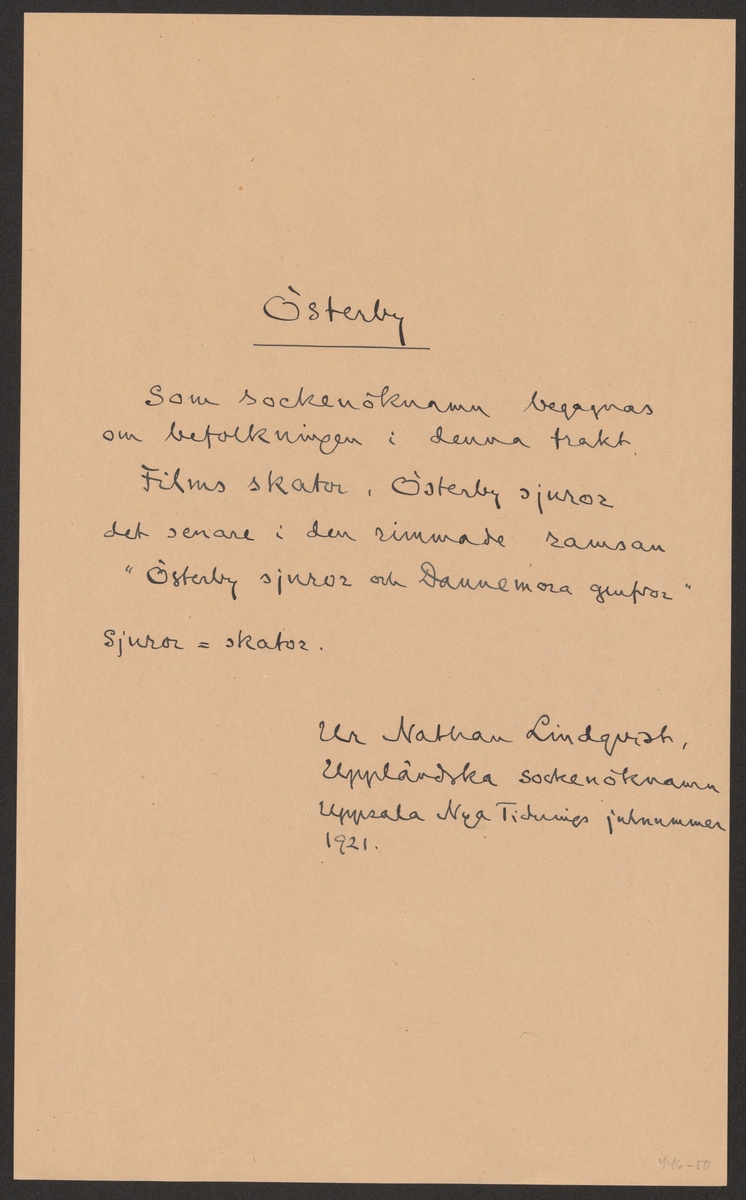 Österby
Som sockenöknamn begagnas
om befolkningen i denna trakt.
Films skator, Österby sjuror
det senare i den rimmade ramsan
"Österby sjuror och Dannemora gufror"
Sjuror = skator.
Ur Nathan Lindqvist,
Uppländska sockenöknamn
Uppsala Nya Tidnings julnummer
1921.